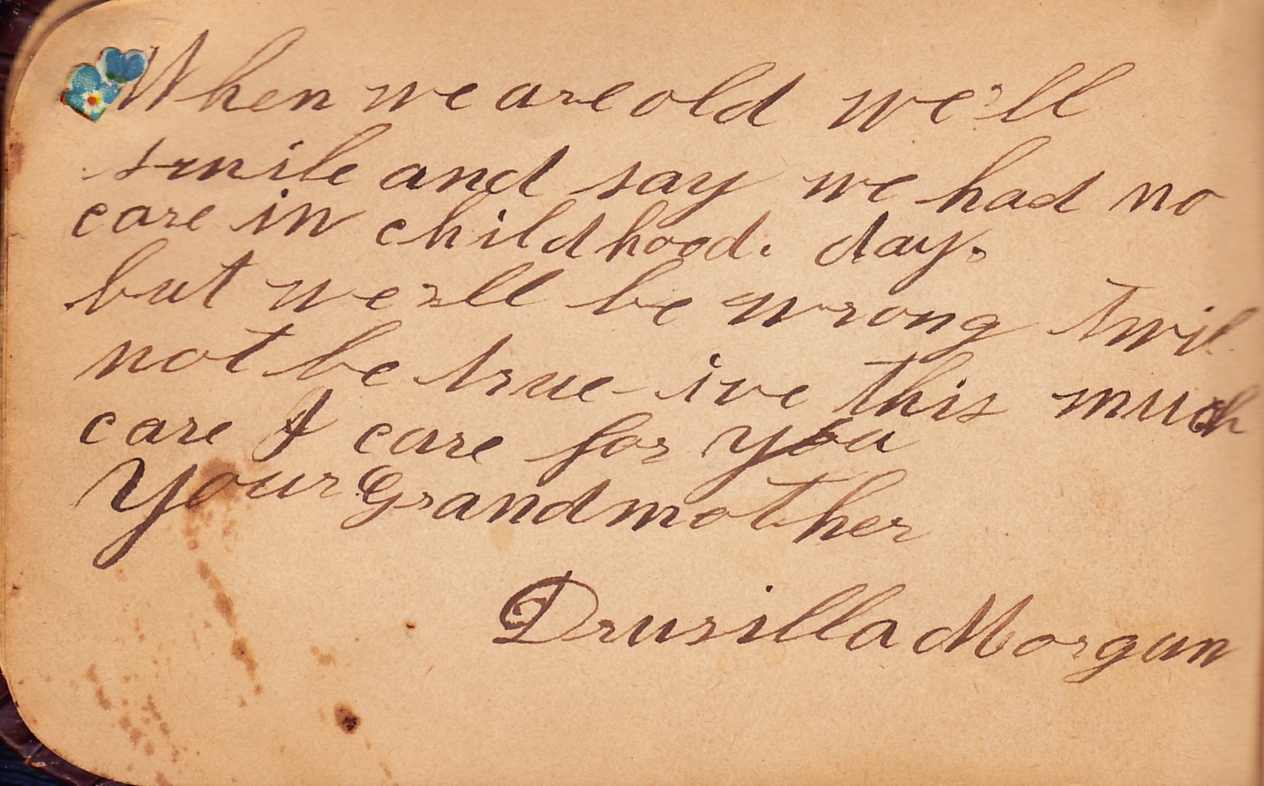 When we are old we'll
smile and say we had no
care in childhood. day.
but we'll be wrong twil
not be true ive this much
care I care for you
Your Grandmother
Drusilla Morgan